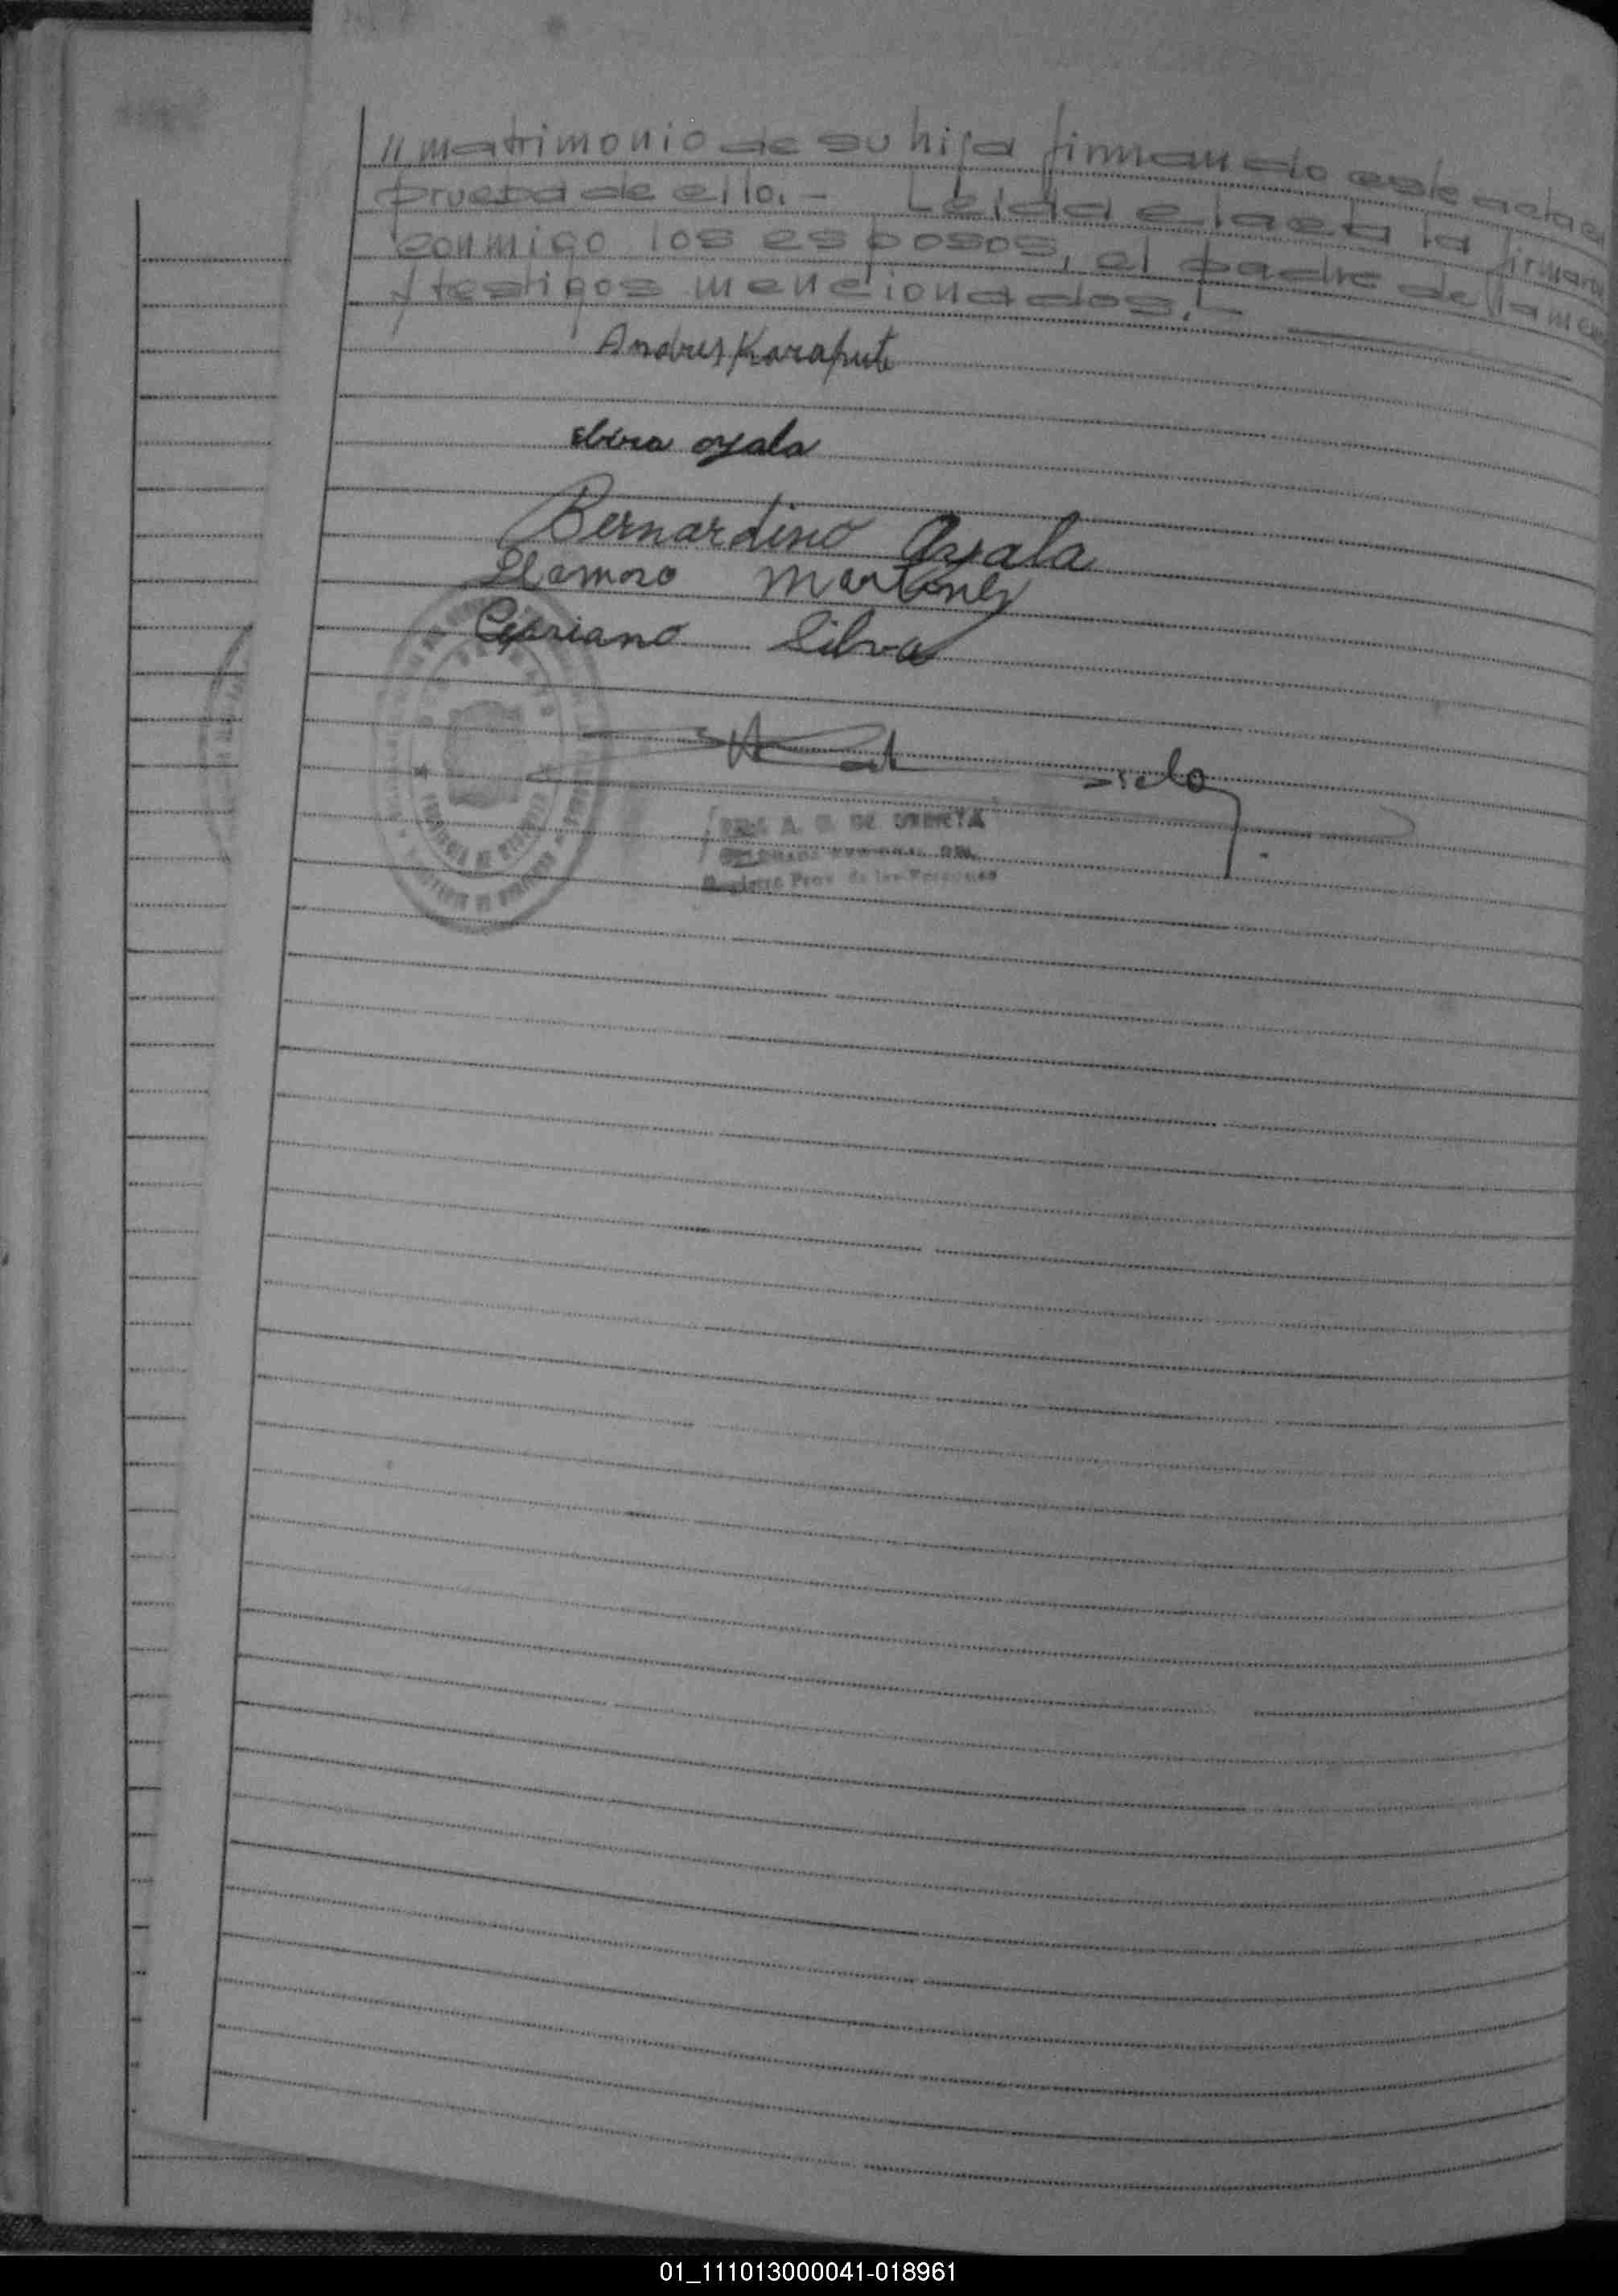 // matrimonio de su hija firmando este acta en
prueba de ello.- Leida el acta la firmaron
conmigo los esposos, el padre de la men
y testigos mencionados.-
Andres Karaput
elvira ayala
Bernardino Ayala
Martinez
Cipriano Silva
A. G. DE URRETA
Registro Prov. de las Personas
01_111013000041-018961